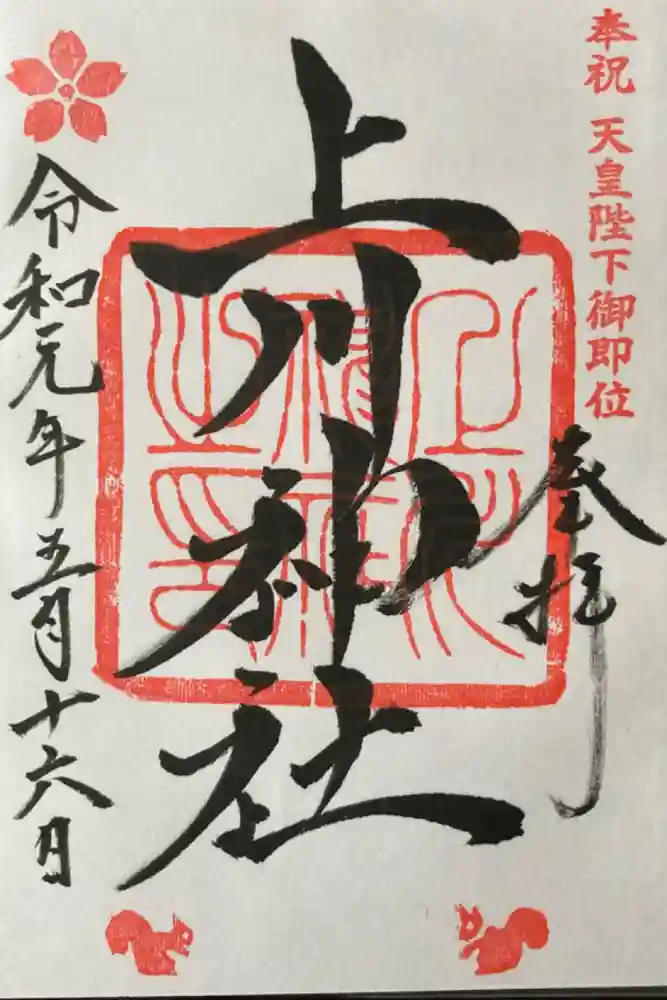 奉祝 天皇陛下御即位
奉拝
上川神社
上川神社之印
令和元年五月十六日